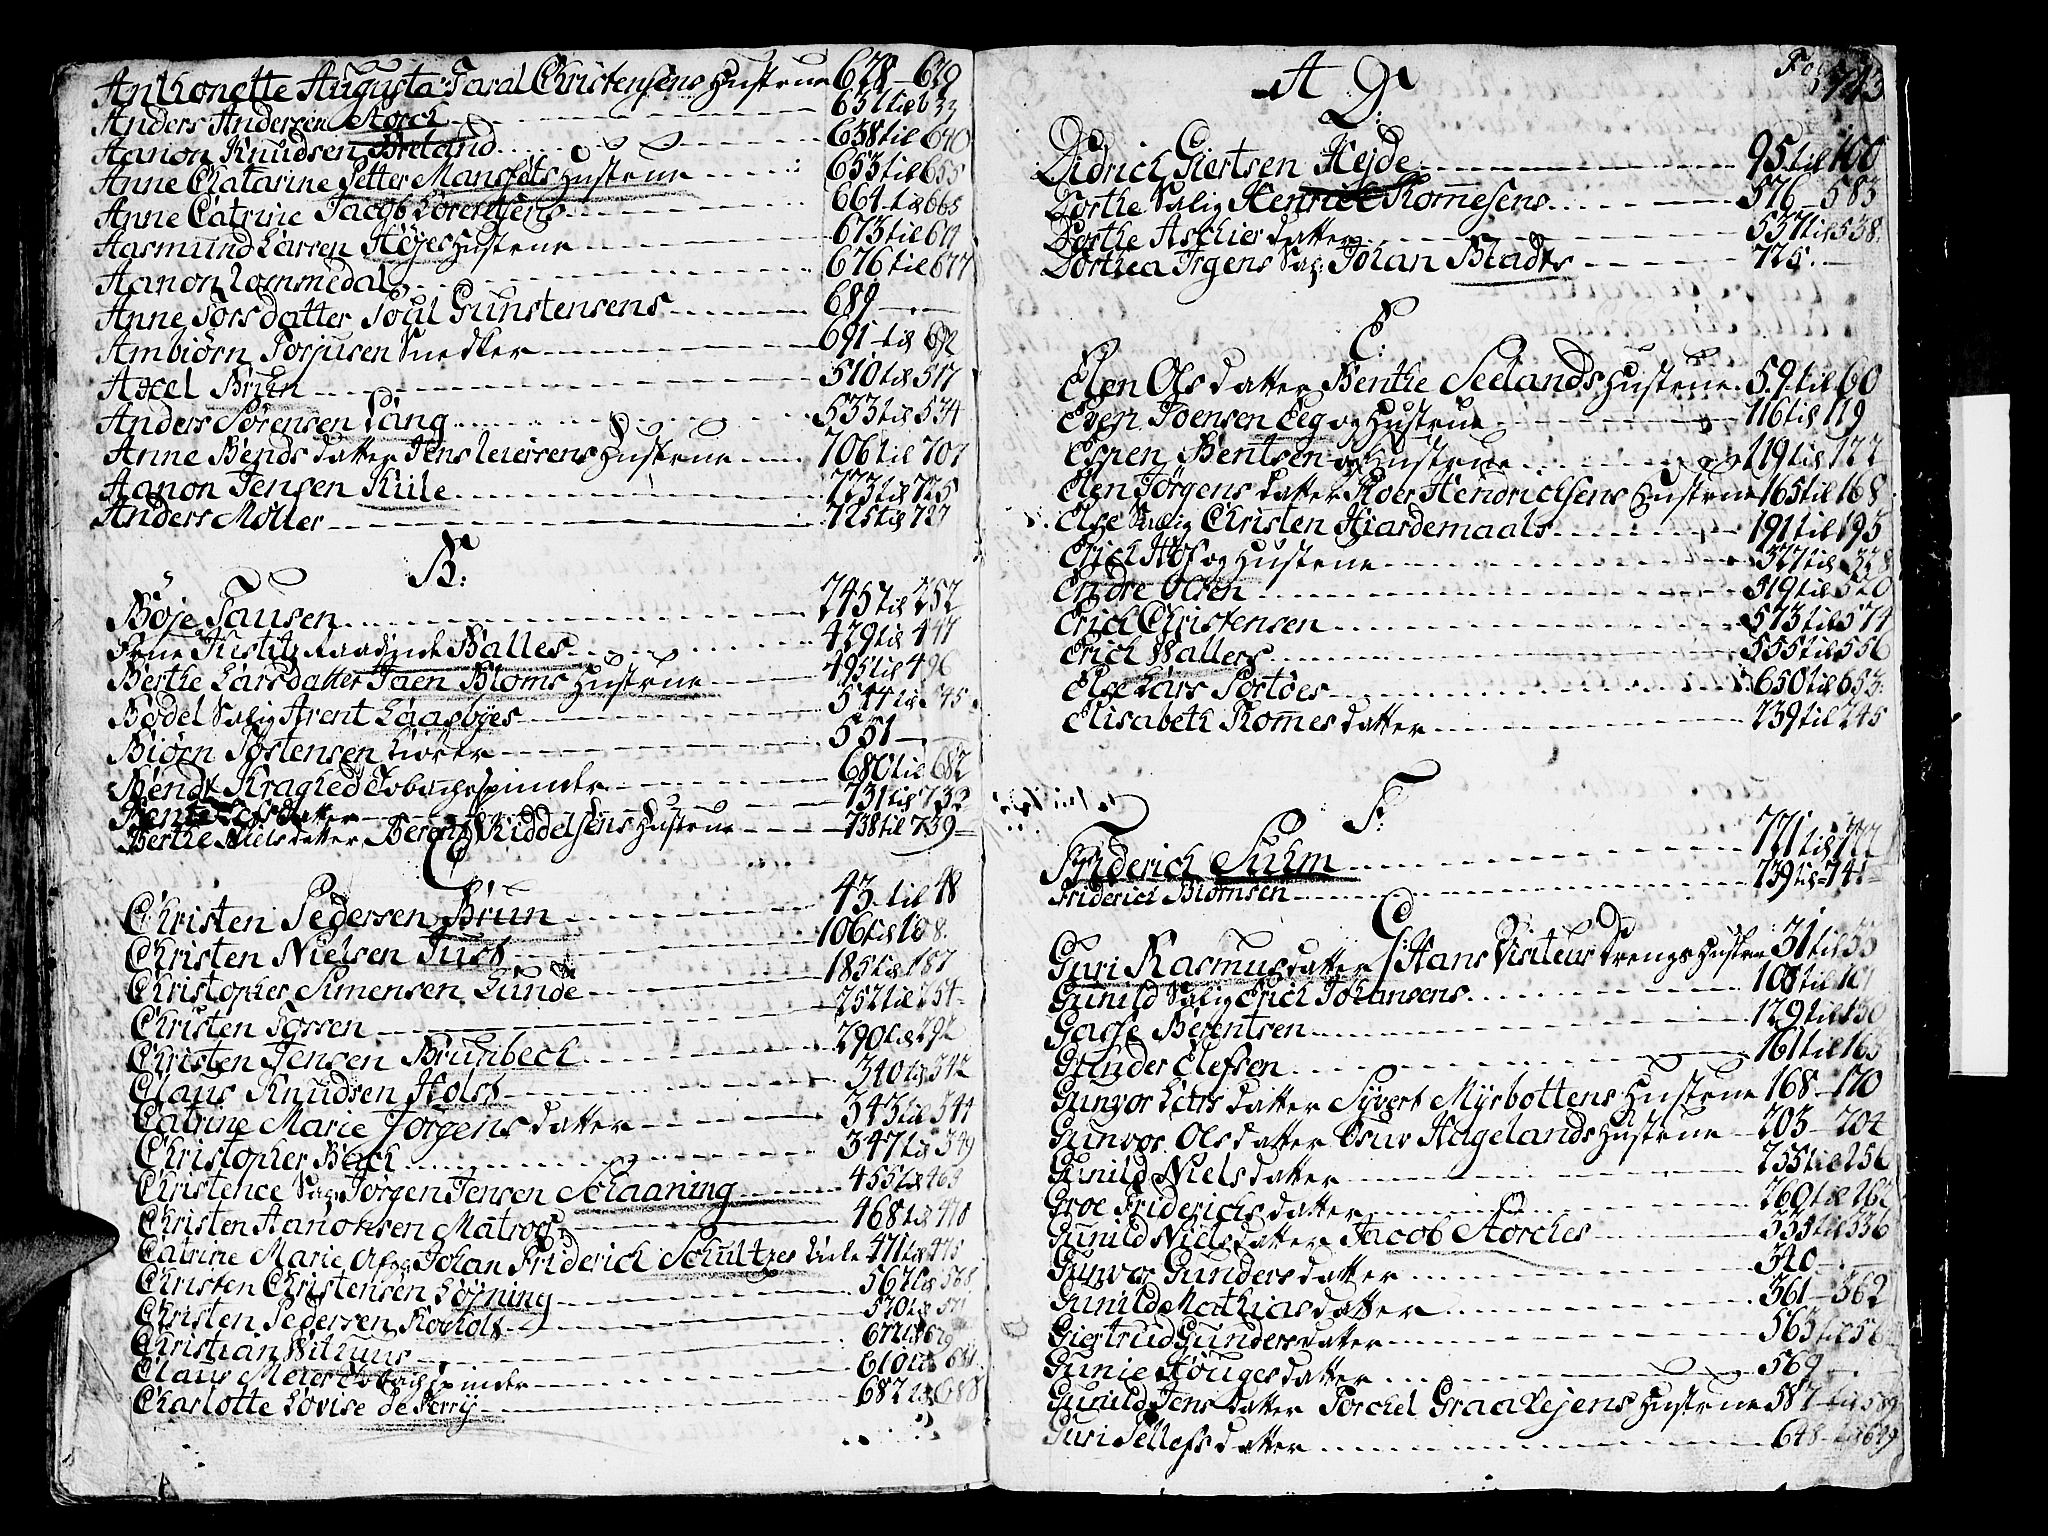 Anthonette Augusta Taral Christensens Hustrue 628 - 629
Anders Andersen Storch 631 til 633
Aanon Knudsen Breland 638 til 640
Anne Catarine Petter Mansfelts Hustrue 653 til 655
Anne Catrine Jacob Lorentsens 664 til 665
Aasmund Larsen Høyes Hustrue 673 til 674
Aanon Lommedal 676 til 677
Anne Lorsdatter Poul Gunstensens 689
Ambiørn Torjusen Snedker 691 til 692
Axel Bruhn 510 til 517
Anders Sørensen Lang 533 til 534
Anne Bendsdatter Jens Leiersens Hustrue 706 til 707
Aanon Jensen Kiile 723 til 725
Anders Møller 725 til 727
B:
Bøje Pausen 245 til 252
Frue Justitz Raadinde Balles 429 til 447
Berthe Larsdatter Joen Bloms Hustrue 495 til 496
Bodel Salig Arent Laasbyes 544 til 545
Biørn Torstensen 551
Bendt Kraglied Tobachspinder 680 til 682
datter 731 til 732
Berthe Nielsdatter Berent Riddelsens Hustrue 738 til 739
C
Christen Pedersen Brun 43 til 48
Christen Nielsen Just 106 til 108
Christopher Simensen Lunde 185 til 187
Christen Torsen 252 til 254
Christen Jensen Brunbech 290 til 292
Claus Knudsen Holst 340 til 342
Catrine Marie Jørgensdatter 343 til 344
Christopher Bach 347 til 349
Christence Salig Jørgen Jensen Schaaning 455 til 463
Christen Aanonsen Matros 468 til 470
Catrine Marie Johan Friderich Schultzes 471 til 475
Christen Christensen Lørning 567 til 568
Christen Pedersen Korholt 570 til 571
Christian Withuus 622 til 629
Claus Meier Tobachspinder 610 til
Charlotte Lovise de Ferry 682 til 688
A D: Fol 743
D:
Didrich Giertsen Hejde 95 til 100
Dorthe Salig Henrich Thomesens 576 - 583
Dorthe Aschiersdatter 537 til 538
Dorthea Irgens Sal: Johan Bladts 725
E:
Elen Olsdatter Benthe Seelands Hustrue 59 til 60
Even Joensen Eeg og Hustrue 116 til 119
Espen Bentsen og Hustrue 119 til 122
Elen Jørgensdatter Roer Hendrichsens Hustrue 165 til 168
Else Salig Christen Hiardemaals 191 til 195
Erich Høs og Hustrue 327 til 328
Endre Olsen 519 til 520
Erich Christensen 573 til 574
Erich Wallers 555 til 556
Else Lars Portøes 650 til 653
Elisabeth Thomesdatter 239 til 245
F:
Friderich Suhm 721 til 722
Friderich Blomsen 739 til 741
G:
Guri Rasmusdatter Hans Visiteur Drengs Hustrue 31 til 33
Gunild Salig Erich Johansens 108 til
Gasse Berentsen 129 til 130
Gunder Elefsen 161 til 165
Gunvor Larsdatter Syvert Myrbottens Hustrue 168 - 170
Gunvor Olsdatter Osuv Hagelands Hustrue 203 - 204
Gunild Nielsdatter 255 til 256
Groe Friderichsdatter 260 til 262
Gunild Nielsdatter Jacob Storches 335 til 336
Gunvor Gundersdatter 340
Gunild Mathiasdatter 361 - 362
Giertrud Gundersdatter 563 til
Gunie Hougesdatter 569
Gunild Jensdatter Torchel Graalejens Hustrue 587 til 589
Guri Pellefsdatter 648 til 649